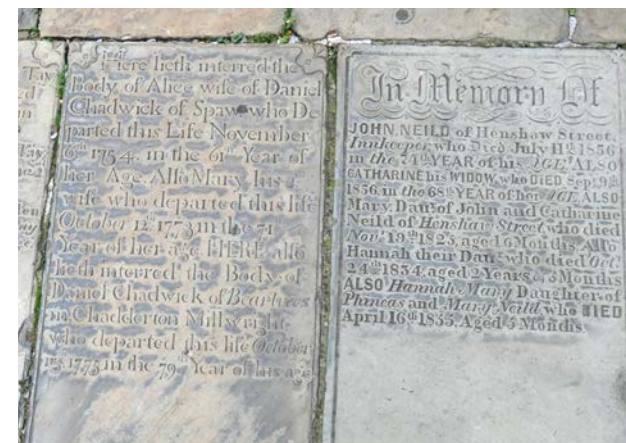 Here lieth interred the
body of Alice wife of Daniel
Chadwick of Spaw who De
parted this Life November
6th 1754. in the 61st Year of
her Age Also Mary his
wife who departed this life
October 12th 1773 in the 71
Year of her age HERE also
lieth interred the Body of
Daniel Chadwick of Beartrees
in Chadderton Millwright
who departed this life October
1773 in the 79th Year of his age
In Memory Of
JOHN NEILD of Henshaw Street,
Innkeeper who Died July 11th 1856
in the 74th YEAR of his AGE. ALSO
CATHARINE his WIDOW, who DIED Sept. 9th
1856, in the 68th YEAR of her AGE. ALSO
Mary, Daur. of John and Catharine
Neild of Henshaw Street who died
Novr. 19th 1823, aged 6 Months. Also
Hannah their Daur. who died Octr.
24th 1834, aged 2 Years & 3 Months
ALSO Hannah Mary Daughter of
Phineas and Mary Neild who DIED
April 16th 1855. Aged 5 Months.